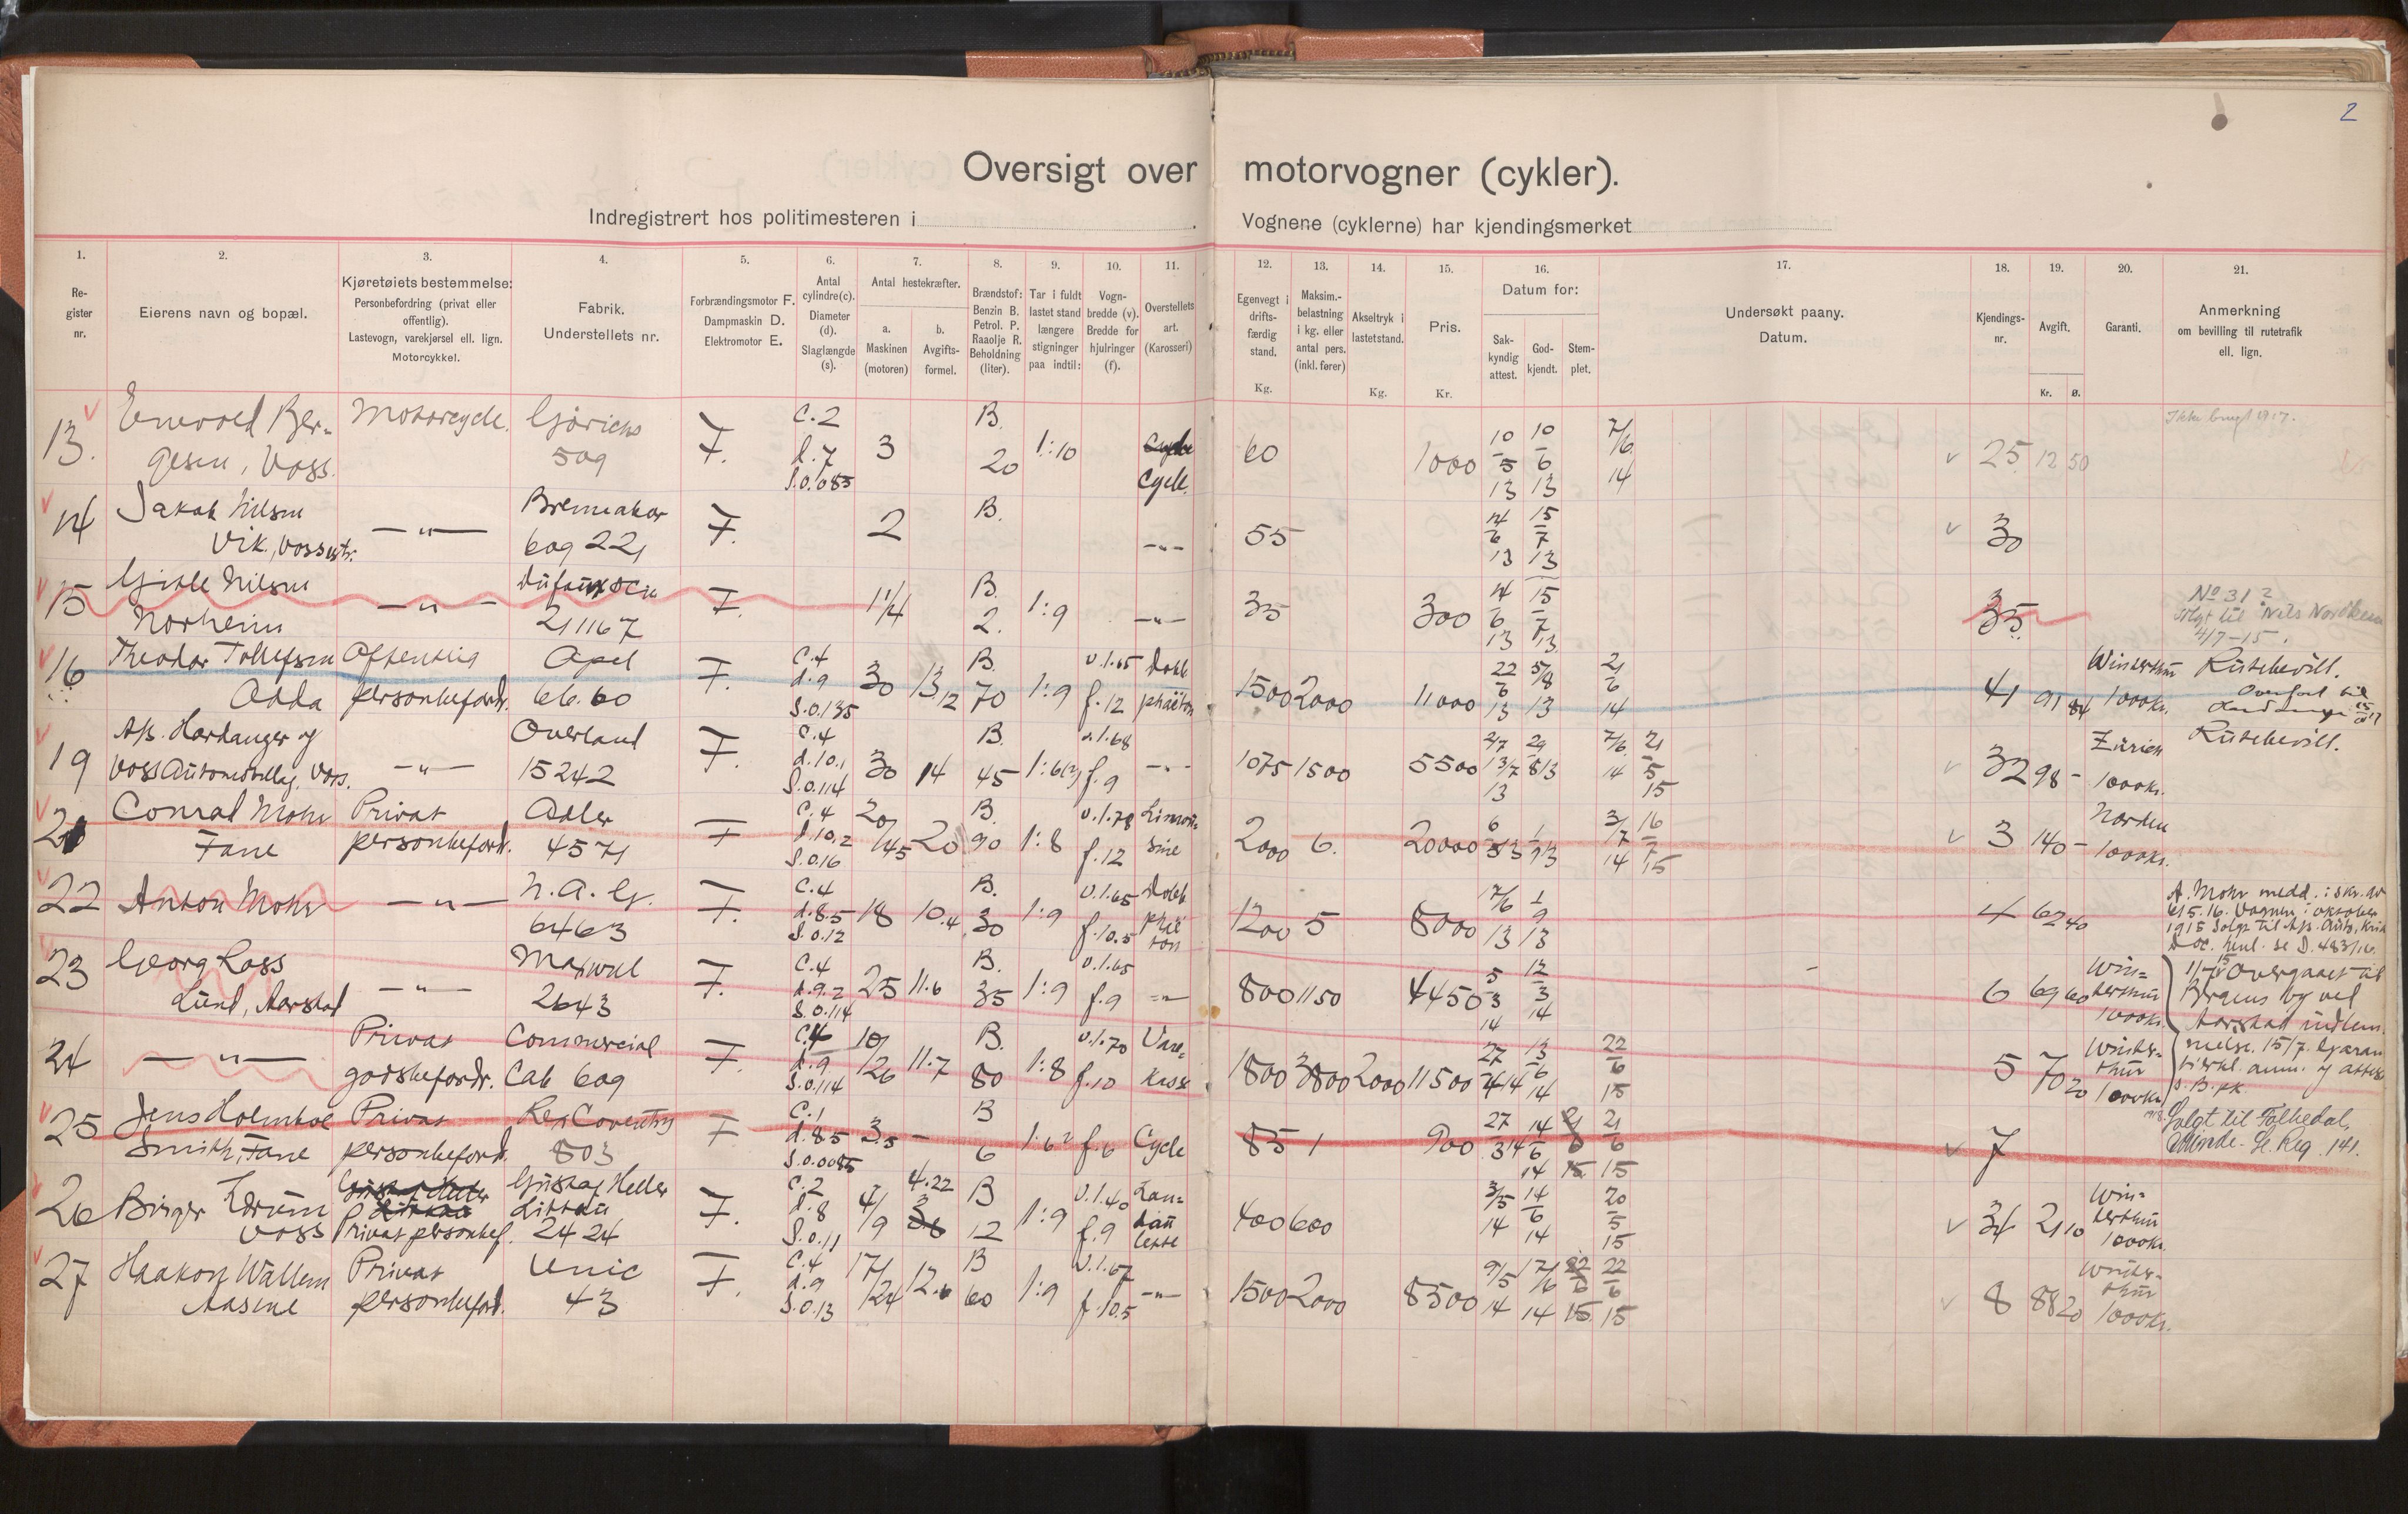 2
Oversigt over motorvogner (cykler).
Indregistrert hos politimesteren i . Vognene (cyklerne) har kjendingsmerket
1. 2. 3. 4. 5. 6. 7. 8. 9. 10. 11. 12. 13. 14. 15. 16. 17. 18. 19. 20. 21.
Re-gister nr.
Eierens navn og bopæl.
Kjøretøiets bestemmelse: Personbefordring (privat eller offentlig). Lastevogn, varekjørsel ell. lign. Motorcykkel.
Fabrik. Understellets nr.
Forbrændingsmotor F. Dampmaskin D. Elektromotor E.
Antal cylindre(c). Diameter (d). Slaglængde (s).
Antal hestekræfter. a. Maskinen (motoren) b. Avgifts-formel.
Brændstof: Benzin B. Petrol. P. Raaolje R. Beholdning (liter).
Tar i fuldt lastet stand længere stigninger paa indtil:
Vogn-bredde (v). Bredde for hjulringer (f).
Overstellets art. (Karosseri)
Egenvegt i drifts-færdig stand. Kg.
Maksim.-belastning i kg. eller antal pers. (inkl. fører)
Akseltryk i lastet stand. Kg.
Pris. Kr.
Datum for: Sak-kyndig attest. God-kjendt. Stem-plet.
Undersøkt paany. Datum.
Kjendings-nr.
Avgift. Kr. Ø.
Garanti.
Anmerkning om bevilling til rutetrafik ell. lign.
13. Enevold Ber- Motorcycle. Göricke F. c.2 B. Ikke brugt 1917.
gesen, Voss. 509 d.7 3 20 1:10 Cycle 60 1000 10/5 13 10/6 13 7/6 14 25 12 50
s.0.085 Cycle.
14 Jakob Nilsen —"— Brennabor F. 2 B. 55 14/6 13 15/7 13 30
Vik, Vossestr. 609221 —"—
15 Gjelle Nilsen —"— F. 1 1/4 B. 1:9 35 300 14/6 13 15/7 13 35 No 31?
Norheim 211167 2. —"— Solgt til Nils Nordheim
4/7-15.
16 Theodor Tollefsen Offentlig Opel F. c.4 30 13,12 B. 1:9 v.1.65 Dobb. 1500 2000 11000 22/6 13 5/8 13 2/6 14 41 91 84 Winterthur Rutebevill.
Odda personbefordr. 66.60 d.9 s.0.135 70 f.12 phaëton 1000kr. Overført til Hardanger
19 A/s. Hardanger og —"— Overland F. c.4 30 14 B. v.1.68 —"— 1075 1500 5500 7/6 14 21/5 15 32 98 - Zürich Rutebevill.
Voss Automobillag, Voss. 15242 d.10.1 s.0.114 45 f.9 1000kr.
Conrad Mohr Privat Adler F c.4 20/45 20 B. 1:8 v.1.78 Limou- 2000 6. 20000 3/7 14 16/7 15 3 140 - Norden
Fane personbeford. 4571 d.10.2 s.0.16 90 f.12 sine 1000kr.
22 Anton Mohr —"— N.A.G. F. c.4 18 10.4 B. 1:9 v.1.65 Dobb. 1200 5 8000 17/6 13 1/9 13 4 62 40 A. Mohr medd. i skr. av
6463 d.8.5 s.0.12 30 f.10.5 phaëton 6/5.16. Vognen i oktober
1915 solgt til A/s. Auto, Kria
Doc. henl. se D. 483/16.
23 Georg Lass —"— Maxwel F. c.4 25 11.6 B. 1:9 v.1.65 800 1150 4450 5/3 14 12/3 14 6 69 60 Winterthur 1/7 15 Overgaaet til
Lund, Aarstad 2643 d.9.2 s.0.114 35 f.9 —"— 1000kr. Bergens by ved
Aarstad indlem-
24 —"— Privat Commercial F. c.4 10/26 11.7 B. 1:8 v.1.70 Vare- 1800 3800 2000 11500 27/4 14 13/6 14 22/6 15 5 70 20 Winterthur melse. 15/7. Garan
godsbefordr. Cab 609 d.9 s.0.114 80 f.10 kasse 1000kr.
25 Jens Holmboe Privat Rex Coventry F c.1 3.5 - B 1:6 f.6 Cycle 85 1 900 27/3 14 14/6 14 21/6 15 7 Solgt til Folkedal,
Smith, Fane personbeford. 803 d.8.5 s.0.0085 6 Ulvinde. Se Reg. 141.
26 Birger Gustaf Heller F. c.2 4/9 4.22 B 1:9 v.1.40 Lan- 400 600 3/5 14 14/6 14 20/5 15 34 21 10 Winterthur
Voss Privat personbef. 2424 d.8 s.0.11 12 f.9 1000kr.
27 Haakon Wallem Privat Unic F. c.4 17/24 12.6 B 1:9 v.1.67 —"— 1500 2000 8500 9/5 14 17/6 14 22/6 15 22/6 15 8 88 20 Winterthur
Aasene personbeford. 43 d.9 s.0.13 60 f.10.5 1000kr.